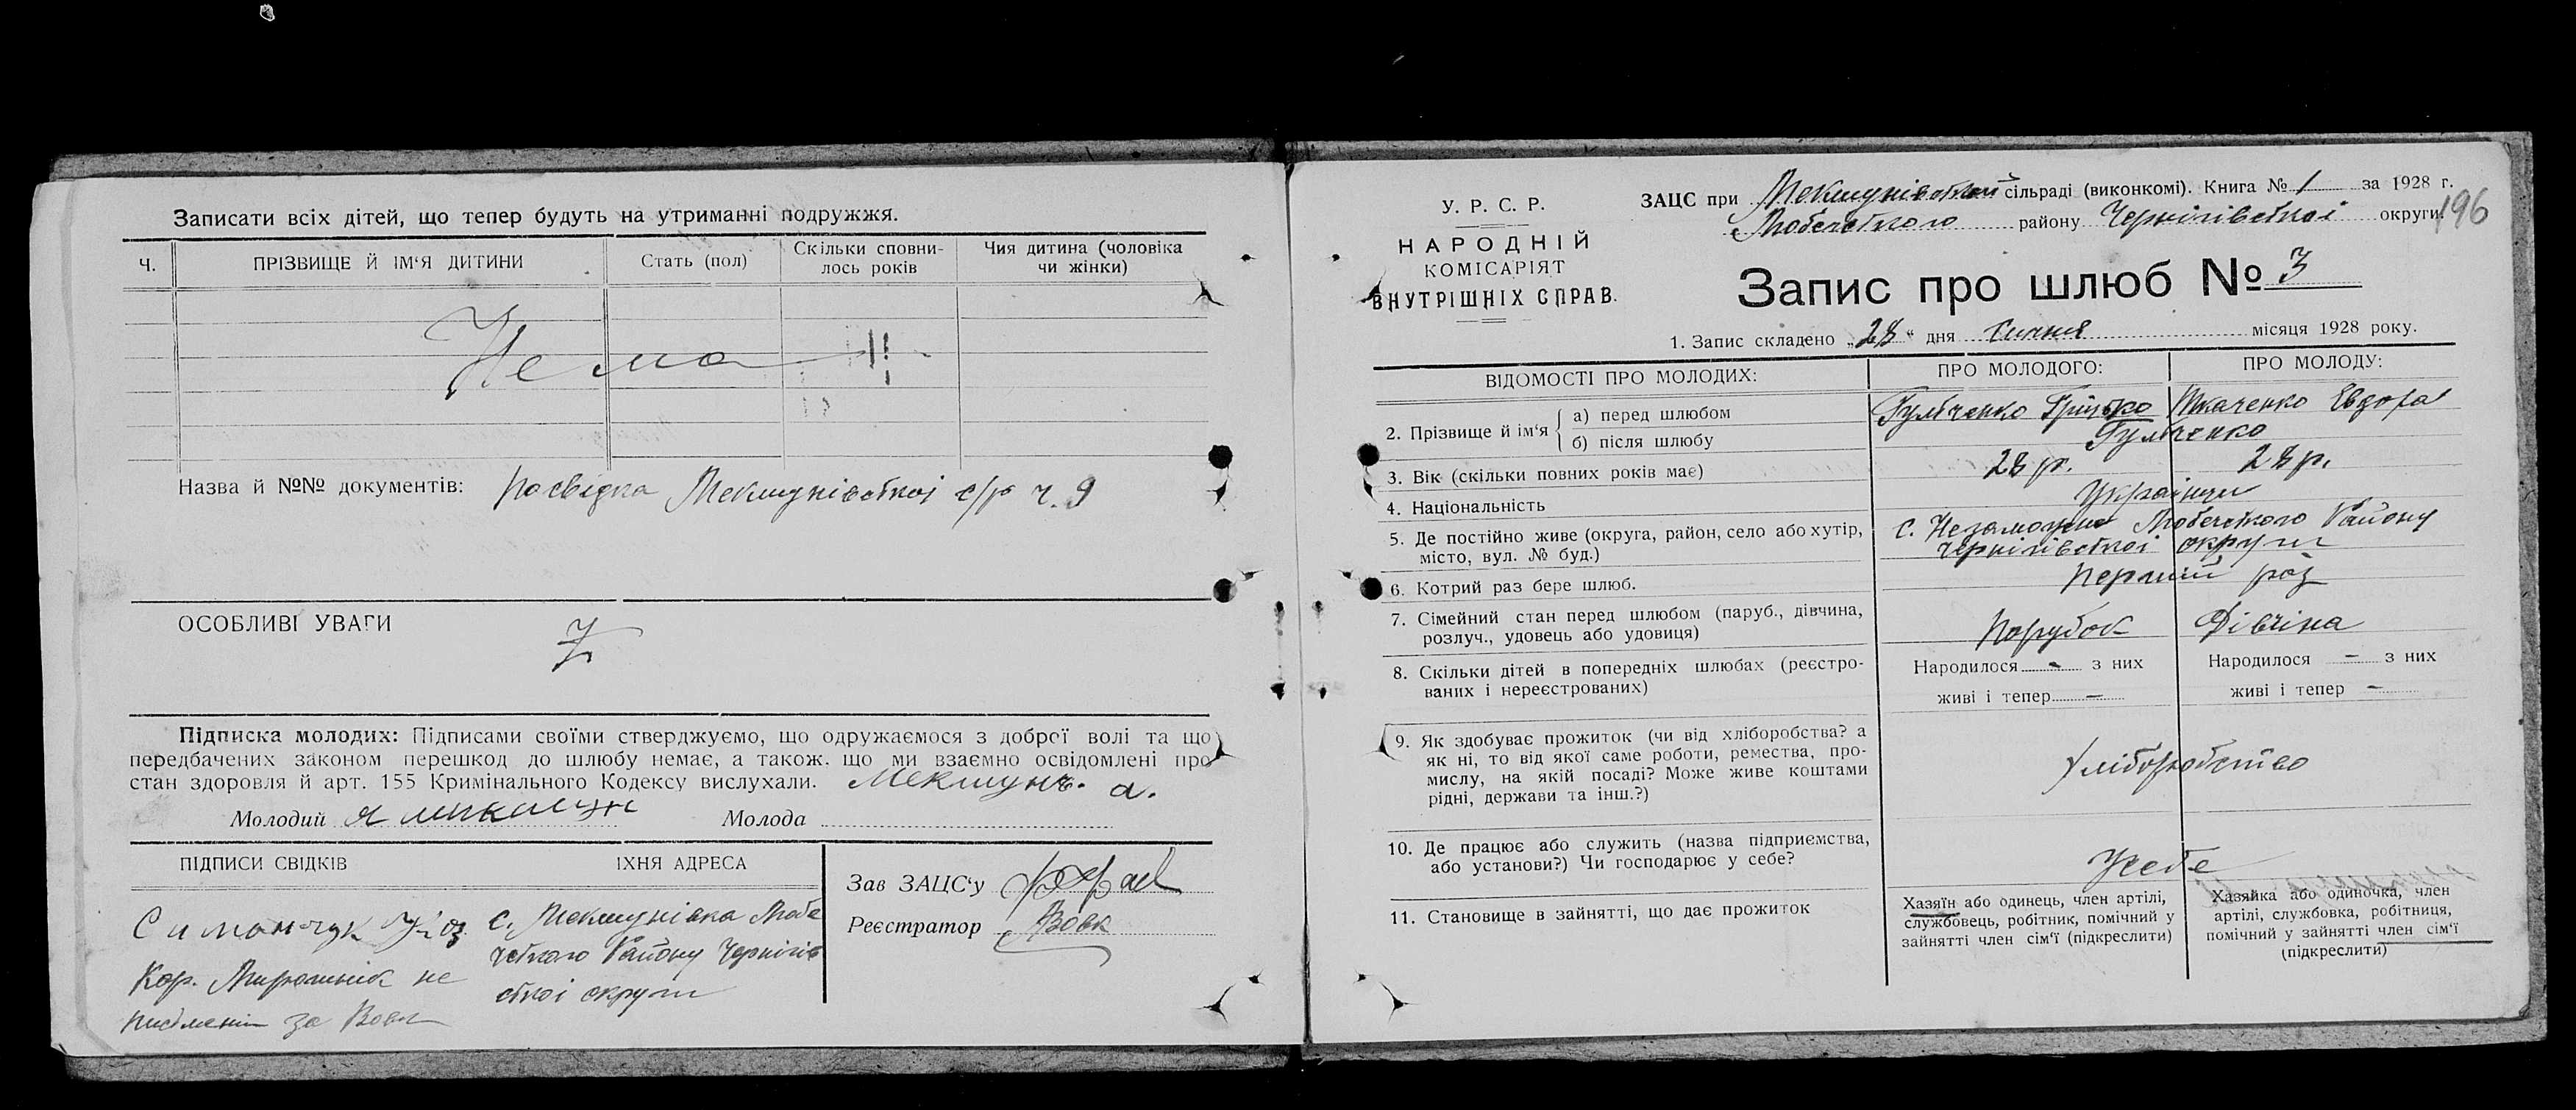 Записати всіх дітей, що тепер будуть на утриманні подружжя.
Ч.
ПРІЗВИЩЕ Й ІМ'Я ДИТИНИ
Стать (пол)
Скільки сповни-
лось років
Чия дитина (чоловіка
чи жінки)
Нема
Назва й №№ документів: Посвідка Мекшунівської с/р ч. 9
ОСОБЛИВІ УВАГИ
Підписка молодих: Підписами своїми стверджуємо, що одружаємося з доброї волі та що
передбачених законом перешкод до шлюбу немає, а також, що ми взаємно освідомлені про
стан здоровля й арт. 155 Кримінального Кодексу вислухали. Мекшунъ. а.
Молодий Я микшун Молода
ПІДПИСИ СВІДКІВ
ЇХНЯ АДРЕСА
Симончук
Кор. Мирошнік не
письмений за Вовк
с. Мекшунівка Любе
чського Району Чернігів
ської округи
Зав ЗАЦС'у
Реєстратор Вовк
У. Р. С. Р.
НАРОДНІЙ
КОМІСАРІЯТ
ВНУТРІШНІХ СПРАВ.
ЗАЦС при Мекшунівській сільраді (виконкомі). Книга № 1 за 1928 г.
Любечського району Чернігівської округи.
196
Запис про шлюб № 3
1. Запис складено „28“ дня Січня місяця 1928 року.
ВІДОМОСТІ ПРО МОЛОДИХ:
ПРО МОЛОДОГО:
ПРО МОЛОДУ:
2. Прізвище й ім'я
а) перед шлюбом
Гульченко Грицько
Ткаченко Евдора
б) після шлюбу
Гульченко
3. Вік (скільки повних років має)
28 р.
28 р.
4. Національність
Українци
5. Де постійно живе (округа, район, село або хутір,
місто, вул. № буд.)
с. Незаможне Любечського Району
Чернігівської округи
6. Котрий раз бере шлюб.
Перший раз
7. Сімейний стан перед шлюбом (паруб., дівчина,
розлуч., удовець або удовиця)
Порубок
Дівчина
8. Скільки дітей в попередніх шлюбах (реєстро-
ваних і нереєстрованих)
Народилося - з них
живі і тепер —
Народилося — з них
живі і тепер —
9. Як здобуває прожиток (чи від хліборобства? а
як ні, то від якої саме роботи, ремества, про-
мислу, на якій посаді? Може живе коштами
рідні, держави та інш.?)
Хліборобство
10. Де працює або служить (назва підприємства,
або установи?) Чи господарює у себе?
У себе
11. Становище в зайнятті, що дає прожиток
Хазяїн або одинець, член артілі,
службовець, робітник, помічний у
зайнятті член сім'ї (підкреслити)
Хазяйка або одиночка, член
артілі, службовка, робітниця,
помічний у зайнятті член сім'ї
(підкреслити)